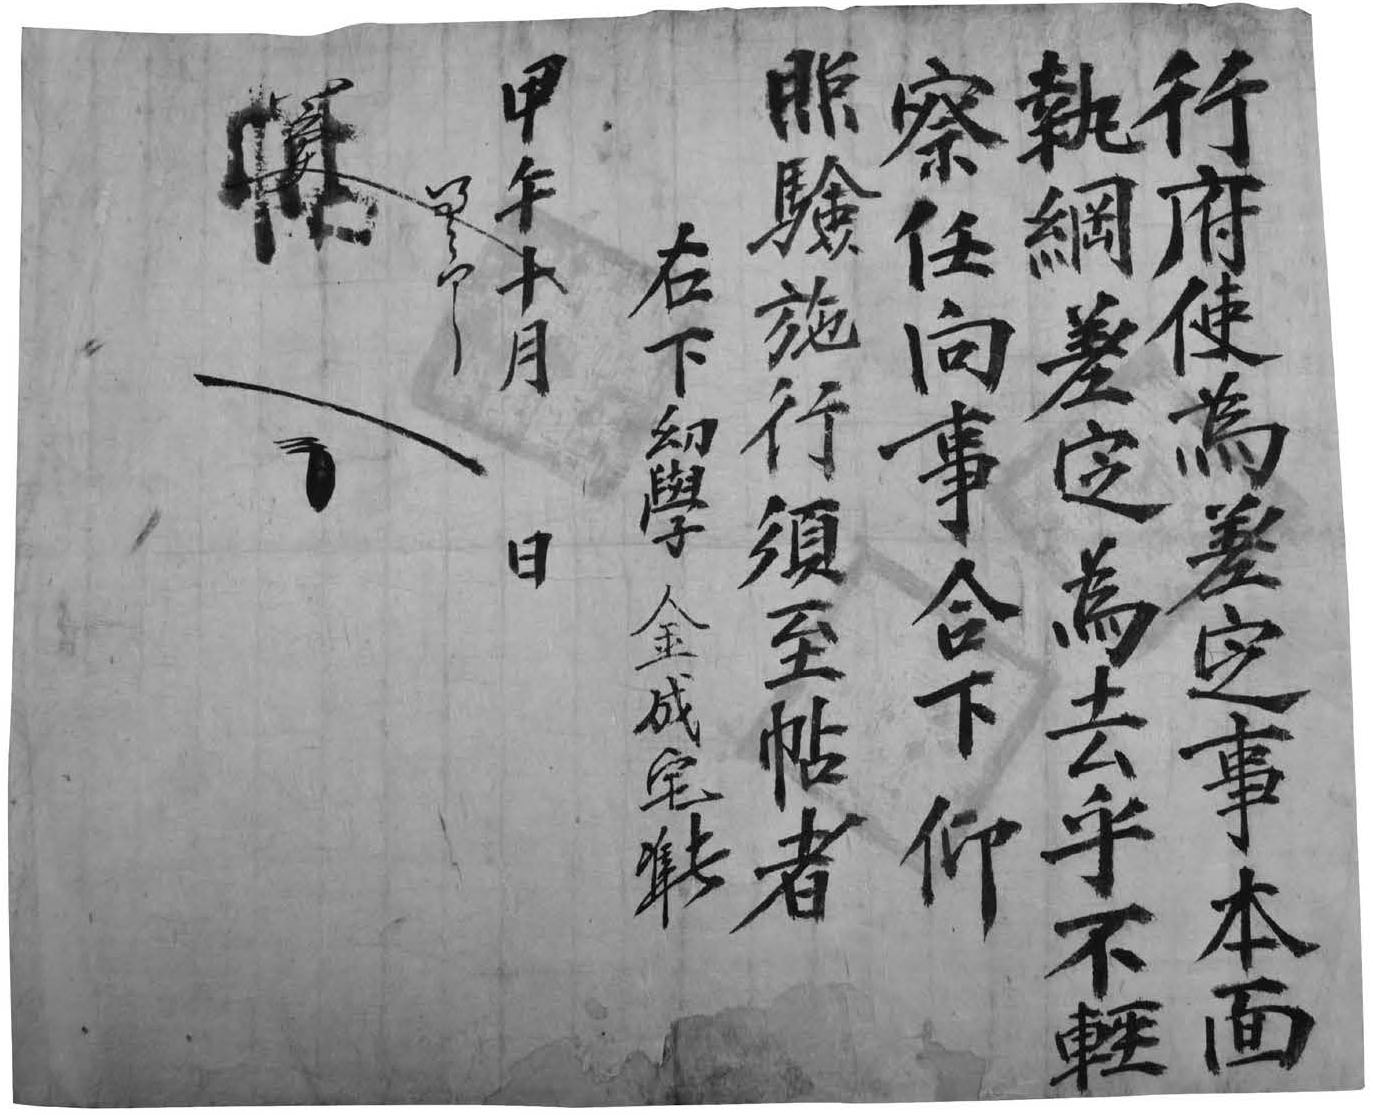 行府使爲差定事本面
執綱差定爲去乎不輕
察任向事合下仰
照驗施行須至帖者
右下幼學 金成宅 準此
甲午十月 日
帖